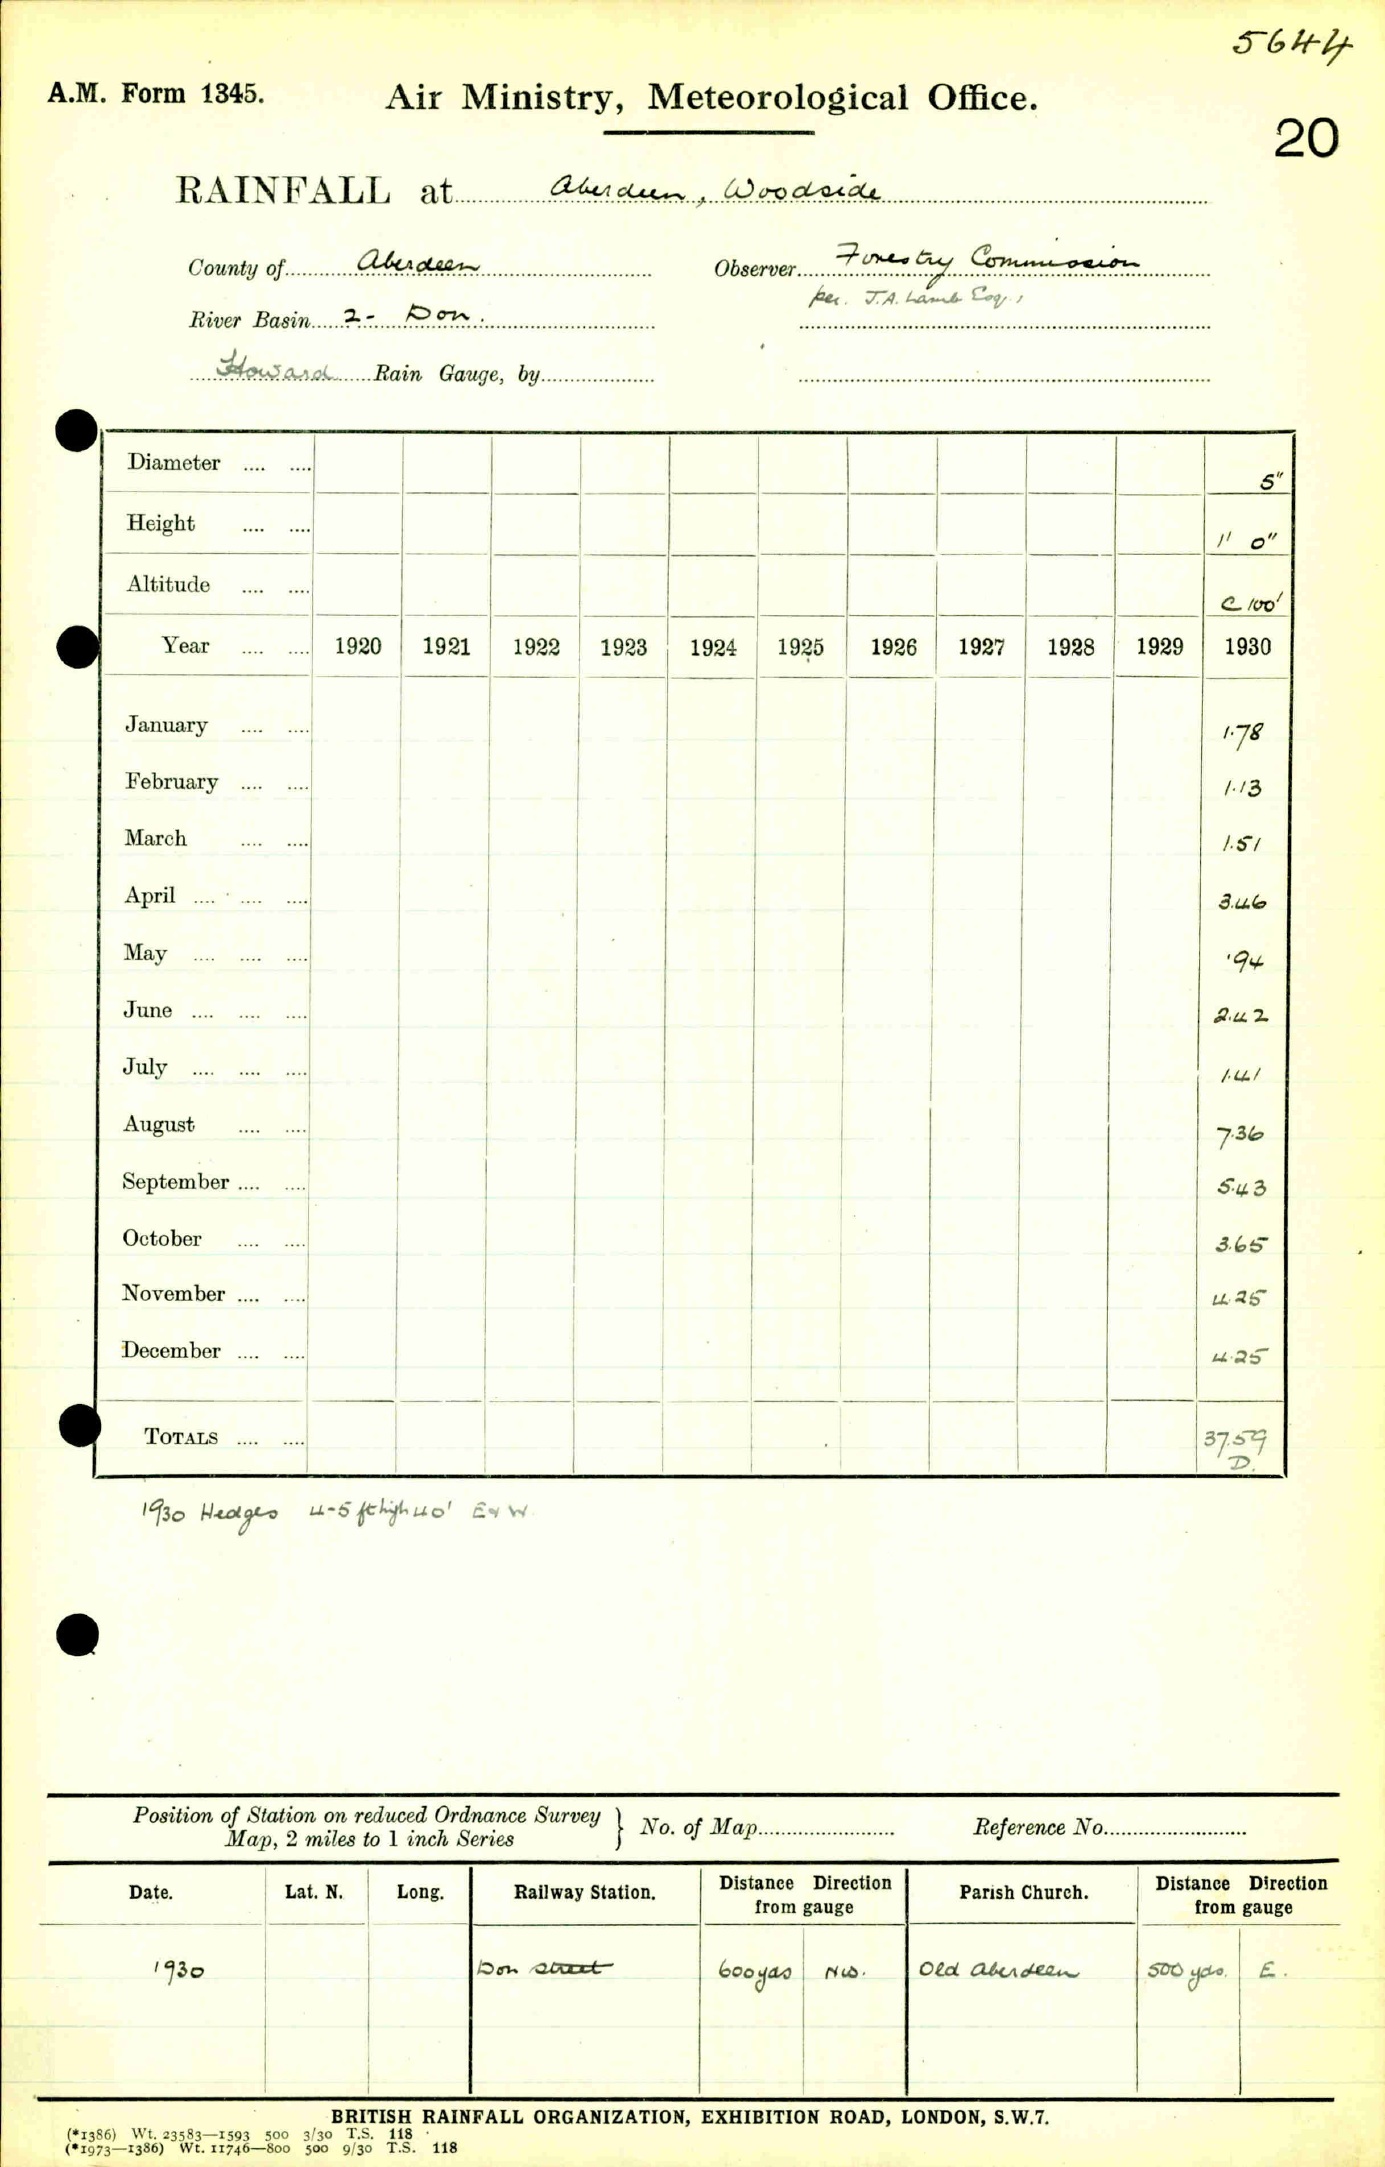 5644
A.M. Form 1345. Air Ministry, Meteorological Office.
20
RAINFALL at Aberdeen, Woodside
County of Aberdeen Observer Forestry Commission
per. J.A. Lamb Esq.,
River Basin 2- Don.
Howard Rain Gauge, by
Diameter .... .... 5"
Height .... .... 1' 0"
Altitude .... .... C 100'
Year .... .... 1920 1921 1922 1923 1924 1925 1926 1927 1928 1929 1930
January .... .... 1.78
February .... .... 1.13
March .... .... 1.51
April .... .... .... 3.46
May .... .... .... .94
June .... .... .... 2.42
July .... .... .... 1.41
August .... .... 7.36
September .... .... 5.43
October .... .... 3.65
November .... .... 4.25
December .... .... 4.25
TOTALS .... .... 37.59
D.
1930 Hedges 4-5 ft high 40' E & W
Position of Station on reduced Ordnance Survey
Map, 2 miles to 1 inch Series } No. of Map Reference No.
Date. Lat. N. Long. Railway Station. Distance Direction from gauge Parish Church. Distance Direction from gauge
1930 Don Street 600 yds NW. Old Aberdeen 500 yds. E.
BRITISH RAINFALL ORGANIZATION, EXHIBITION ROAD, LONDON, S.W.7.
(*1386) Wt. 23583—1593 500 3/30 T.S. 118
(*1973—1386) Wt. 11746—800 500 9/30 T.S. 118